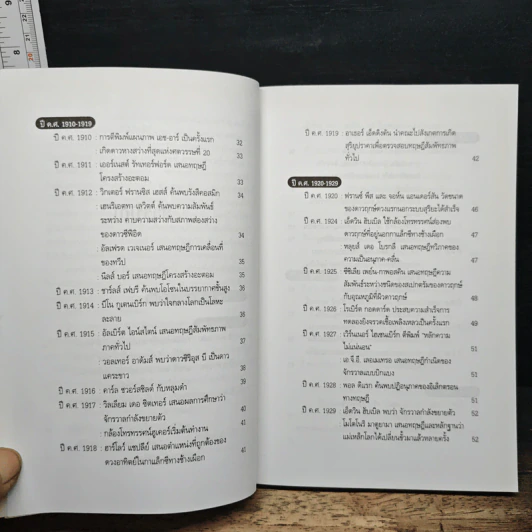 ปี ค.ศ. 1910-1919
ปี ค.ศ. 1910 : การตีพิมพ์แผนภาพ เอช-อาร์ เป็นครั้งแรก 32
เกิดดาวหางสว่างที่สุดแห่งศตวรรษที่ 20 33
ปี ค.ศ. 1911 : เออร์เนสต์ รัทเทอร์ฟอร์ด เสนอทฤษฎี
โครงสร้างอะตอม 33
ปี ค.ศ. 1912 : วิกเตอร์ ฟรานซิส เฮสส์ ค้นพบรังสีคอสมิก
เฮนริเอตทา เลวิตต์ ค้นพบความสัมพันธ์
ระหว่าง คาบความสว่างกับสภาพส่องสว่าง
ของดาวซีฟิอิด 34
อัลเฟรด เวเจเนอร์ เสนอทฤษฎีการเคลื่อนที่
ของทวีป 34
นีลส์ บอร์ เสนอทฤษฎีโครงสร้างอะตอม 35
ปี ค.ศ. 1913 : ชาร์ลส์ เฟบรี ค้นพบโอโซนในบรรยากาศชั้นสูง
ปี ค.ศ. 1914 : บีโน กูเตนเบิร์ก พบว่าใจกลางโลกเป็นโลหะ
ละลาย 36
ปี ค.ศ. 1915 : อัลเบิร์ต ไอน์สไตน์ เสนอทฤษฎีสัมพัทธภาพ
ภาคทั่วไป
วอลเทอร์ อาดัมส์ พบว่าดาวซีริอุส บี เป็นดาว
แคระขาว 38
ปี ค.ศ. 1916 : คาร์ล ชวอร์สชิลด์ กับหลุมดำ 39
ปี ค.ศ. 1917 : วิลเลียม เดอ ซิตเทอร์ เสนอผลการศึกษาว่า
จักรวาลกำลังขยายตัว 40
กล้องโทรทรรศน์ฮูเกอร์เริ่มต้นทำงาน
ปี ค.ศ. 1918 : ฮาร์โลว์ แชปลีย์ เสนอตำแหน่งที่ถูกต้องของ
ดวงอาทิตย์ในกาแล็กซีทางช้างเผือก 41
ปี ค.ศ. 1919 : อาเธอร์ เอ็ดดิงตัน นำคณะไปสังเกตการเกิด
สุริยุปราคาเพื่อตรวจสอบทฤษฎีสัมพัทธภาพ
ทั่วไป 42
ปี ค.ศ. 1920-1929
ปี ค.ศ. 1920 : ฟรานซ์ พีส และ จอห์น แอนเดอร์สัน วัดขนาด
ของดาวฤกษ์ดวงแรกนอกระบบสุริยะได้สำเร็จ 46
ปี ค.ศ. 1924 : เอ็ดวิน ฮับเบิล ใช้กล้องโทรทรรศน์ส่องพบ
ดาวฤกษ์ที่อยู่นอกกาแล็กซีทางช้างเผือก 47
หลุยส์ เดอ โบรกลี เสนอทฤษฎีทวิภาคของ
ความเป็นอนุภาค-คลื่น 47
ปี ค.ศ. 1925 : ซีซิเลีย เพย์น-กาพอสคิน เสนอทฤษฎีความ
สัมพันธ์ระหว่างชนิดของสเปกตรัมของดาวฤกษ์
กับอุณหภูมิที่ผิวดาวฤกษ์ 48
ปี ค.ศ. 1926 : โรเบิร์ต กอดดาร์ด ประสบความสำเร็จการ
ทดลองยิงจรวดเชื้อเพลิงเหลวเป็นครั้งแรก 49
ปี ค.ศ. 1927 : เวิร์นเนอร์ ไฮเซนเบิร์ก ตีพิมพ์ "หลักความ
ไม่แน่นอน" 51
เอ.จี.อี. เลอเมเทรอ เสนอทฤษฎีกำเนิดของ
จักรวาลแบบบิกแบง 51
ปี ค.ศ. 1928 : พอล ดิแรก ค้นพบปฏิอนุภาคของอิเล็กตรอน
ทางทฤษฎี 51
ปี ค.ศ. 1929 : เอ็ดวิน ฮับเบิล พบว่า จักรวาลกำลังขยายตัว 52
โมโตโนริ มาตุยามา เสนอทฤษฎีและหลักฐานว่า
แม่เหล็กโลกได้เปลี่ยนขั้วมาแล้วหลายครั้ง 52